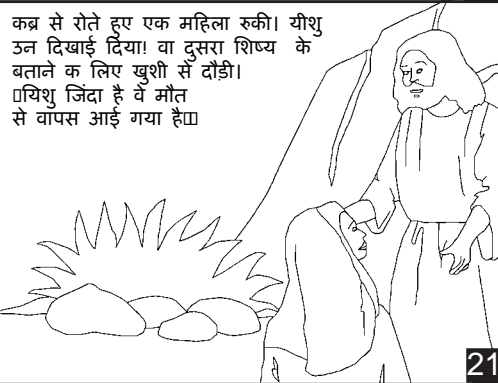 कब्र से रोते हुए एक महिला रुकी। यीशु
उन दिखाई दिया! वा दुसरा शिष्य के
बताने क लिए खुशी से दौड़ी।
▯यिशु जिंदा है वे मौत
से वापस आई गया है▯▯
21